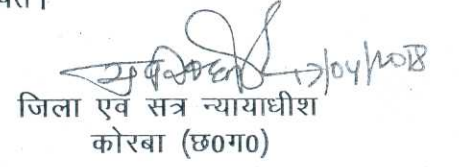 17/04/2018
जिला एवं सत्र न्यायाधीश
कोरबा (छ0ग0)